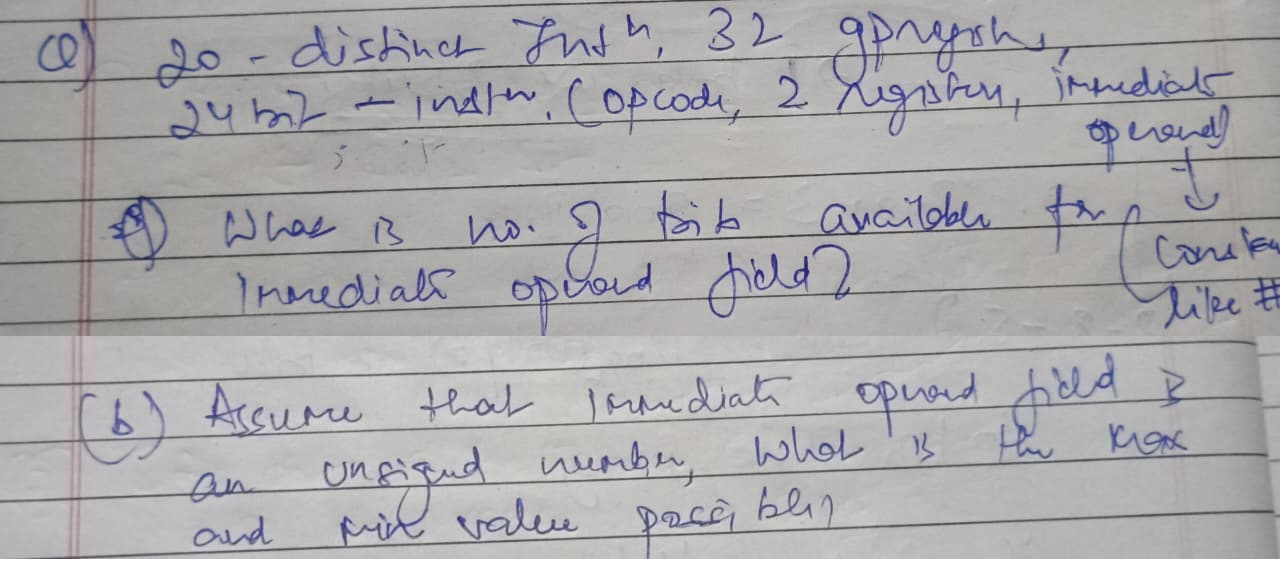 Q) 20 - distinct Instn, 32 gpregisters,
24 bit - instn. (opcode, 2 registers, immediate
operand)
a) What is no. of bits available for
Immediate operand field?
Constant
like #
(b) Assume that immediate operand field is
an unsigned number, What is the max
and min value possible?